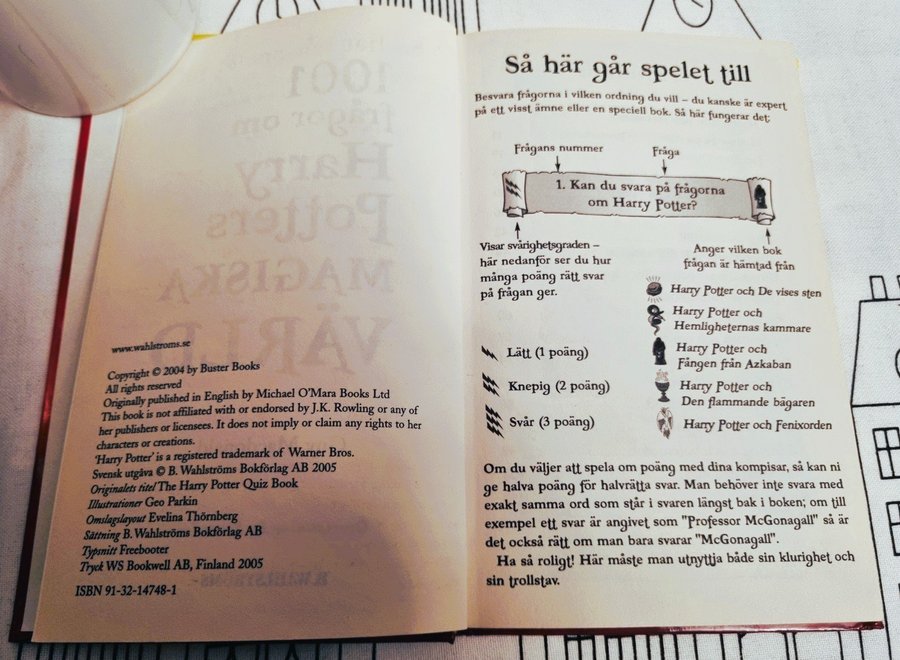 www.wahlstroms.se
Copyright © 2004 by Buster Books
All rights reserved
Originally published in English by Michael O'Mara Books Ltd
This book is not affiliated with or endorsed by J.K. Rowling or any of
her publishers or licensees. It does not imply or claim any rights to her
characters or creations.
'Harry Potter' is a registered trademark of Warner Bros.
Svensk utgåva © B. Wahlströms Bokförlag AB 2005
Originalets titel The Harry Potter Quiz Book
Illustrationer Geo Parkin
Omslagslayout Evelina Thörnberg
Sättning B. Wahlströms Bokförlag AB
Typsnitt Freebooter
Tryck WS Bookwell AB, Finland 2005
ISBN 91-32-14748-1
Så här går spelet till
Besvara frågorna i vilken ordning du vill – du kanske är expert
på ett visst ämne eller en speciell bok. Så här fungerar det:
Frågans nummer
Fråga
1. Kan du svara på frågorna
om Harry Potter?
Visar svårighetsgraden –
här nedanför ser du hur
många poäng rätt svar
på frågan ger.
Anger vilken bok
frågan är hämtad från
Lätt (1 poäng)
Knepig (2 poäng)
Svår (3 poäng)
Harry Potter och De vises sten
Harry Potter och
Hemligheternas kammare
Harry Potter och
Fången från Azkaban
Harry Potter och
Den flammande bägaren
Harry Potter och Fenixorden
Om du väljer att spela om poäng med dina kompisar, så kan ni
ge halva poäng för halvrätta svar. Man behöver inte svara med
exakt samma ord som står i svaren längst bak i boken; om till
exempel ett svar är angivet som "Professor McGonagall" så är
det också rätt om man bara svarar "McGonagall".
Ha så roligt! Här måste man utnyttja både sin klurighet och
sin trollstav.
1001
frågor om
Harry
Potters
MAGISKA
VÄRLD
B. WAHLSTRÖMS